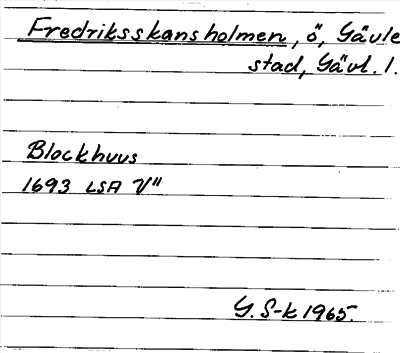 Fredriksskansholmen, ö, Gävle
stad, Gävl. l.
Blockhuus
1693 LSA V"
G. S-k 1965.